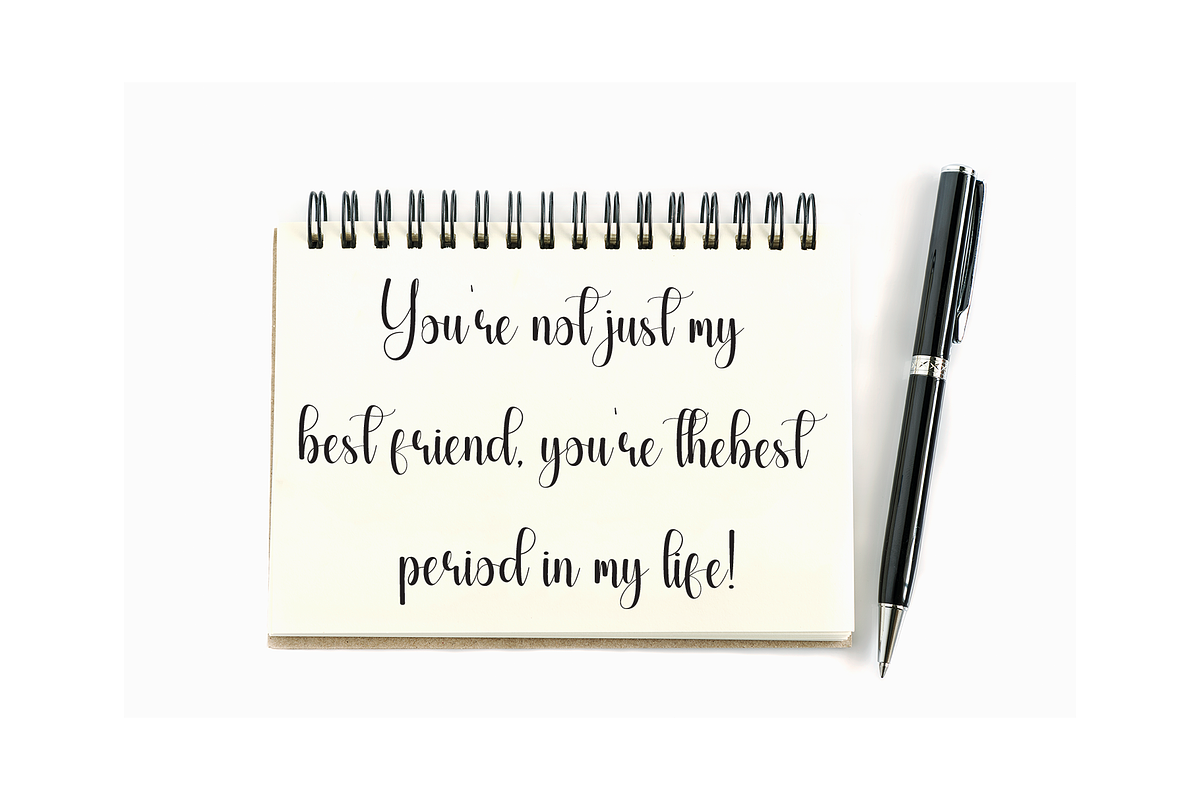 You're not just my
best friend, you're thebest
period in my life!